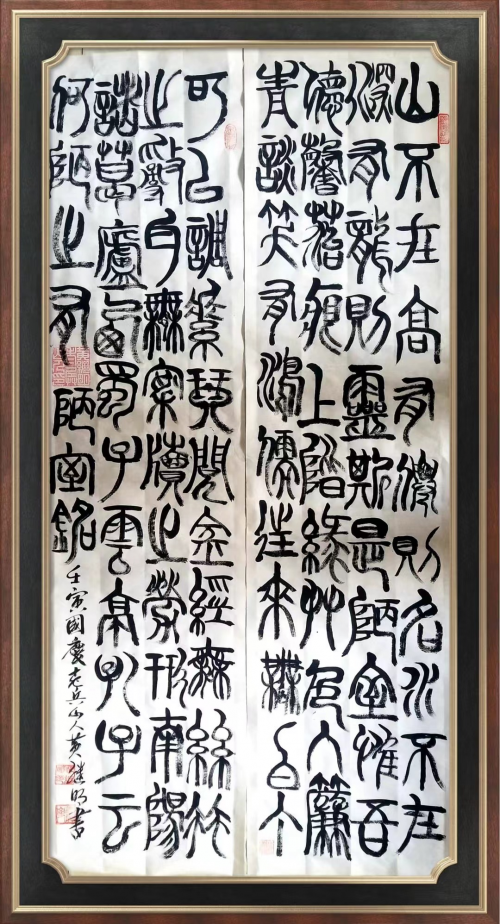 山不在高有僊則名水不在
深有龍則靈斯是陋室惟吾
德馨苔痕上階綠艸色入簾
青談笑有鴻儒往來無白丁
可以調素琴閱金經無絲竹
之亂耳無案牘之勞形南陽
諸葛廬西蜀子雲亭孔子云
何陋之有 陋室銘 壬寅國慶老兵山人黄繼明書